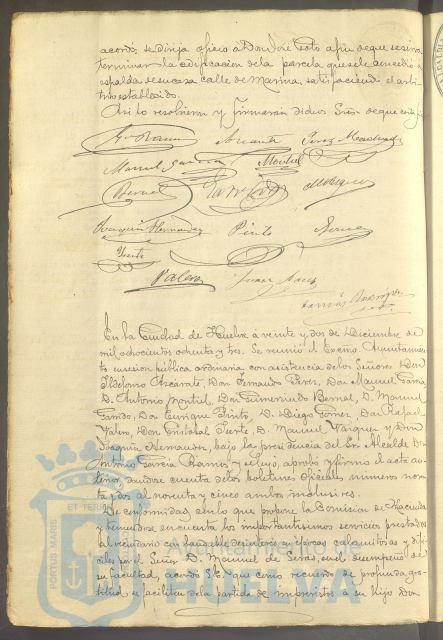 acordó, se dirija oficio a Don José Soto a fin de que se sirva
terminar la edificacion de la parcela que se le concedió a
espalda de su casa calle de Marina, satisfaciendo el arbi-
trio establecido.
Asi lo resolvieron y firmarán dichos Sres. de que certifico
Manuel Garcia Montiel
Bernal Vazquez
Joaquin Hernandez Pinto
Fuerte
Valero
En la Ciudad de Huelva á veinte y dos de Diciembre de
mil ochocientos ochenta y tres. Se reunió el Excmo. Ayuntamiento
en sesion pública ordinaria con asistencia de los Señores Don
Ildefonso Azcárate, Don Fernando Perez, Don Manuel Garcia,
D. Antonio Montiel, Don Gumersindo Bernal, D. Manuel
Garrido, Don Enrique Pinto, D. Diego Gomez, Don Rafael
Valero, Don Cristobal Fuerte, D. Manuel Vazquez y Don
Joaquin Hernandez, bajo la presidencia del Sr. Alcalde Don
Antonio Garcia Ramos y se leyó, aprobó y firmó el acta an-
terior, dandose cuenta de los boletines oficiales numeros noven-
ta y dos al noventa y cinco ambos inclusives.
De conformidad con lo que propone la Comision de Hacienda
y teniendose en cuenta los importantisimos servicios prestados
al vecindario con laudable desinteres en épocas calamitosas y difi-
ciles por el Señor D. Manuel de Seras, en el desempeño de
su facultad, acordó S.E. que como recuerdo de profunda gra-
titud se facilite de la partida de imprevistos a su hijo Don
PORTUS MARIS
ET TERRÆ
Ayuntamiento de
HUELVA